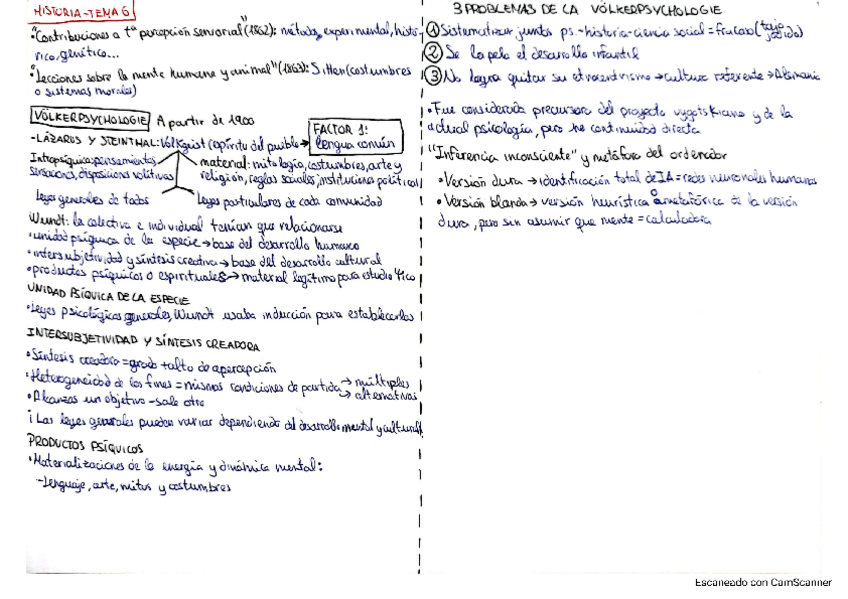 HISTORIA-TEMA 6
"Contribuciones a tª percepción sensorial" (1862): método, experimental, histó-
rico, genético...
"Lecciones sobre la mente humana y animal" (1863): Sitten (costumbres
o sistemas morales)
VÖLKERPSYCHOLOGIE A partir de 1900
-LÁZARUS Y STEINTHAL: Volkgeist (espíritu del pueblo →
FACTOR 1:
lengua común
Intrapsíquica: pensamientos
sensacional, disposiciones volitivas
material: mitología, costumbres, arte y
religión, reglas sociales, instituciones política
Leyes generales de todos
Leyes particulares de cada comunidad
Wundt: la colectiva e individual tenían que relacionarse
•unidad psíquica de la especie → base del desarrollo humano
•intersubjetividad y síntesis creativa → base del desarrollo cultural
•productos psíquicos o espirituales → material legítimo para estudio Ψico
UNIDAD PSÍQUICA DE LA ESPECIE
•Leyes psicológicas generales, Wundt usaba inducción para establecerlas
INTERSUBJETIVIDAD Y SÍNTESIS CREADORA
•Síntesis creadora = grado + alto de apercepción
•Heterogeneidad de los fines = mismas condiciones de partida → múltiples
→ alternativas
•Alcanzas un objetivo - sale otro
¡Las leyes generales pueden variar dependiendo del desarrollo mental y cultural!
PRODUCTOS PSÍQUICOS
•Materializaciones de la energía y dinámica mental:
-Lenguaje, arte, mitos y costumbres
3 PROBLEMAS DE LA VÖLKERPSYCHOLOGIE
① Sistematizar juntos ps.-historia-ciencia social = fracaso
② Se la pela el desarrollo infantil
③ No logra quitar su etnocentrismo → cultura referente → Alemania
•Fue considerada precursora del proyecto vygotskiano y de la
actual psicología, pero no continuidad directa
"Inferencia inconsciente" y metáfora del ordenador
•Versión dura → identificación total de IA = redes neuronales humanas
•Versión blanda → versión heurística o metafórica de la versión
dura, pero sin asumir que mente = calculadora
Escaneado con CamScanner